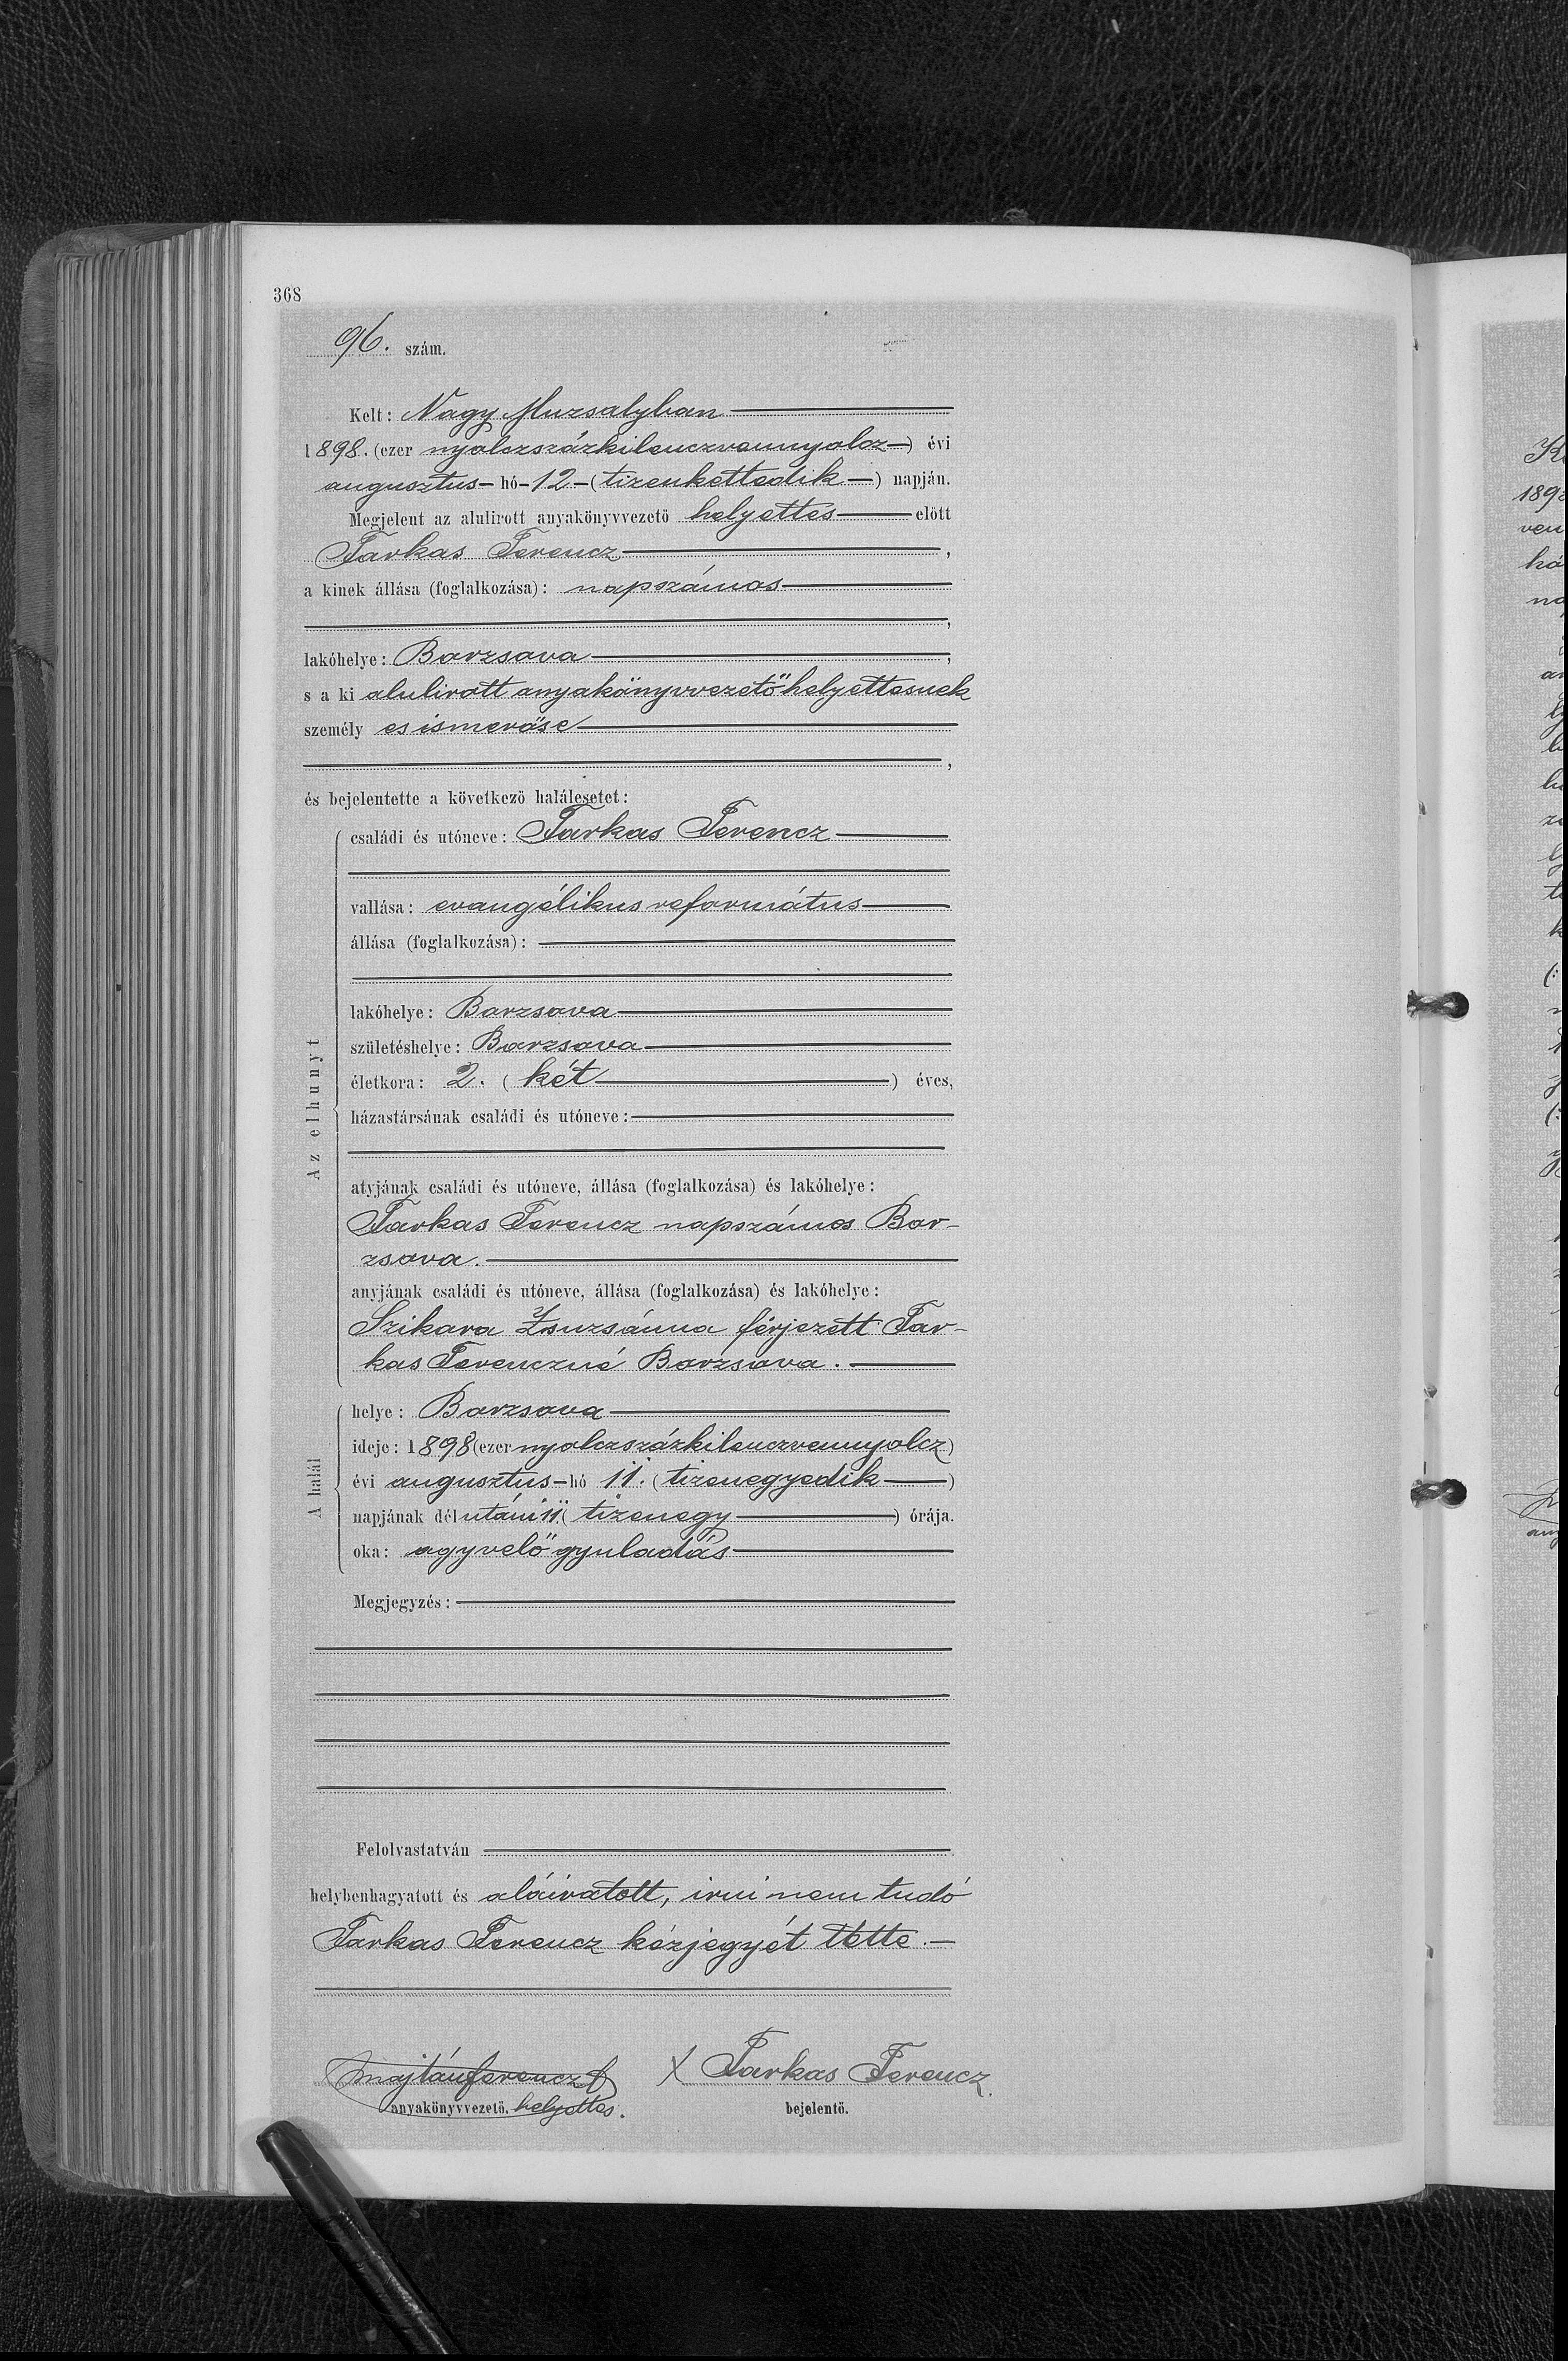 368
96. szám.
Kelt: Nagy Muzsalyban
1898. (ezer nyolczszázkilenczvennyolcz) évi
augusztus hó 12 (tizenkettedik) napján.
Megjelent az alulirott anyakönyvvezető helyettes előtt
Farkas Ferencz,
a kinek állása (foglalkozása): napszámos
,
lakóhelye: Barzsava,
s a ki alulirott anyakönyvvezető helyettesnek
személyes ismerőse
,
és bejelentette a következő halálesetet:
Az elhunyt
családi és utóneve: Farkas Ferencz
vallása: evangélikus református
állása (foglalkozása):
lakóhelye: Barzsava
születéshelye: Barzsava
életkora: 2. (két) éves,
házastársának családi és utóneve:
atyjának családi és utóneve, állása (foglalkozása) és lakóhelye:
Farkas Ferencz napszámos Bar-
zsava.
anyjának családi és utóneve, állása (foglalkozása) és lakóhelye:
Szikara Zsuzsánna férjezett Far-
kas Ferenczné Barzsava.
A halál
helye: Barzsava
ideje: 1898 (ezer nyolczszázkilenczvennyolcz)
évi augusztus hó 11. (tizenegyedik)
napjának délutáni 11. (tizenegy) órája.
oka: agyvelő gyuladás
Megjegyzés:
Felolvastatván
helybenhagyatott és aláiratott, irni nem tudó
Farkas Ferencz kézjegyét tette.
Majtán Ferencz X Farkas Ferencz.
anyakönyvvezető. helyettes. bejelentő.